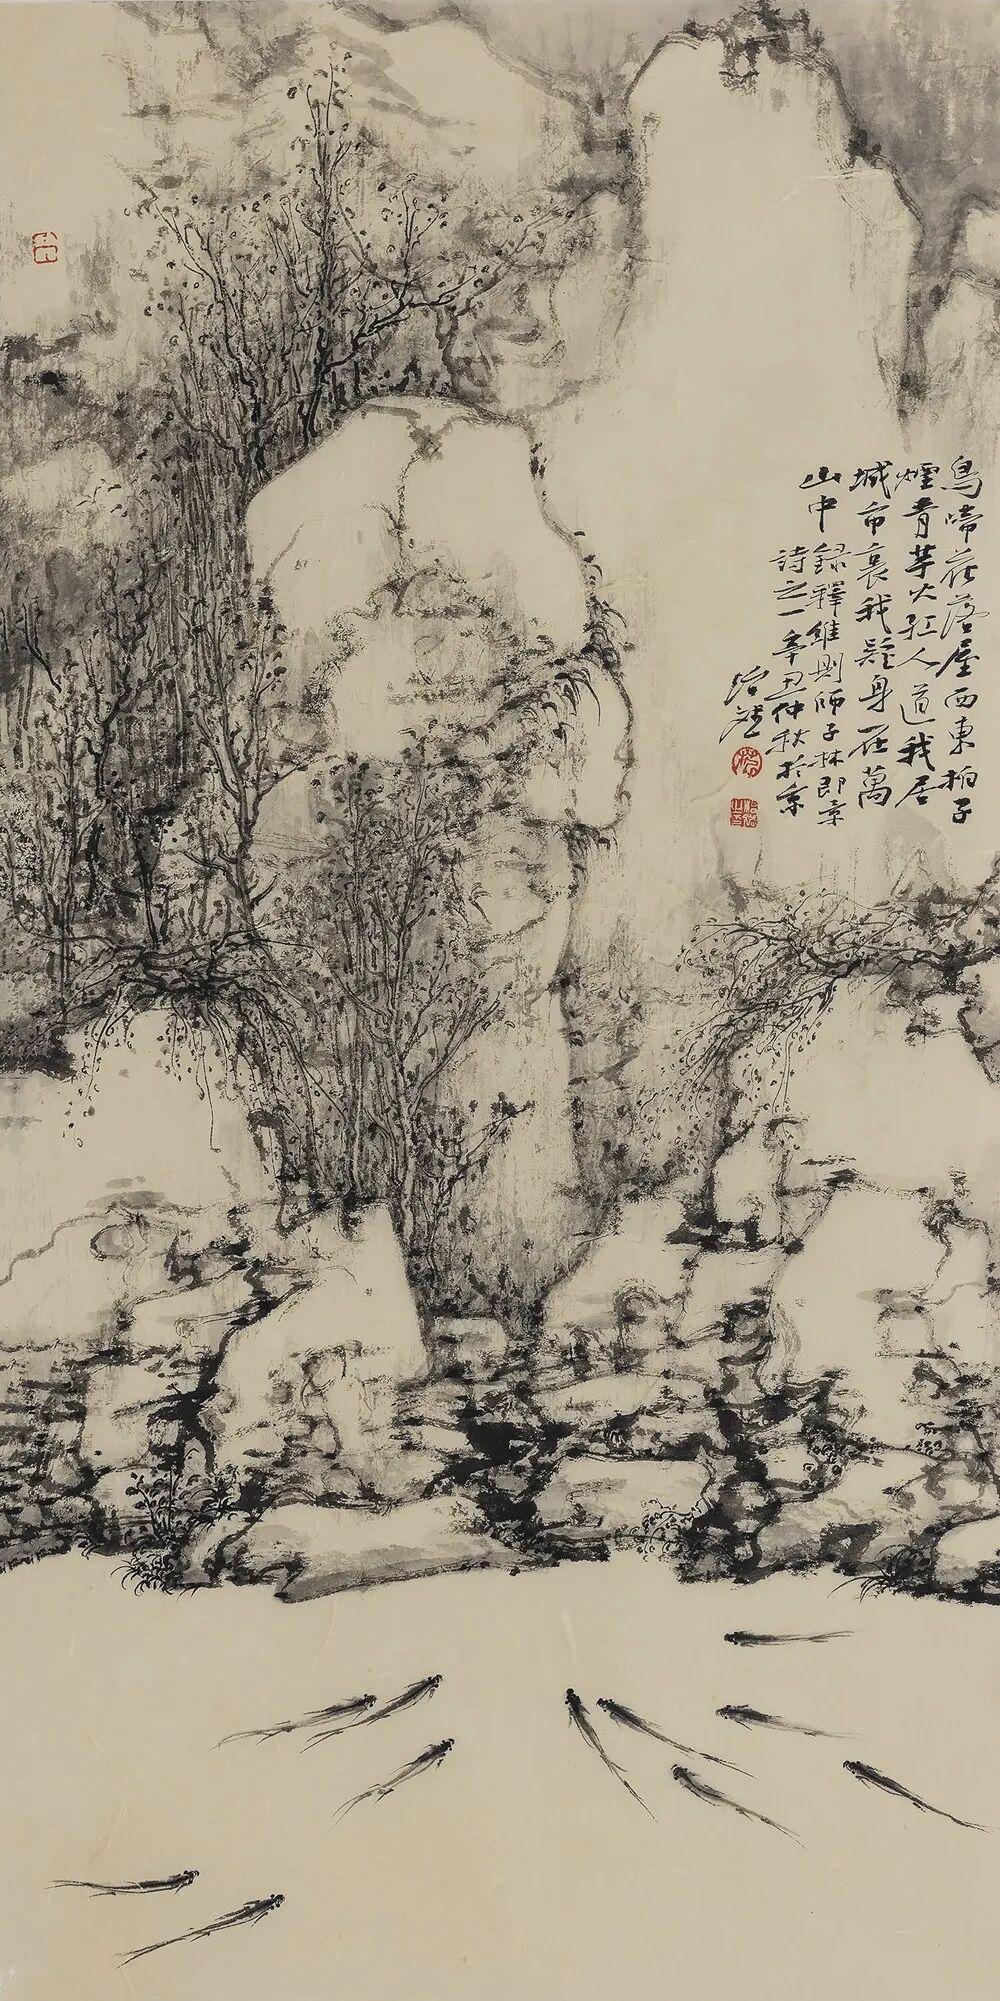 鳥啼花落屋西東柏子
煙青芋火紅人道我居
城市裏我疑身在萬
山中
録釋維則師子林即京
詩之一辛丑仲秋於京